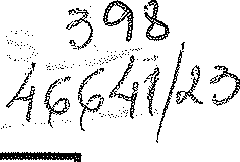 398
46641/23